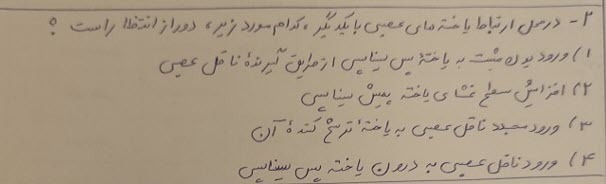 ۲- در محل ارتباط یاخته های عصبی با یکدیگر، کدام مورد زیر، دور از انتظار است؟
۱) ورود یون مثبت به یاختهٔ پس سیناپسی از طریق گیرندهٔ ناقل عصبی
۲) افزایش سطح غشای یاخته پیش سیناپسی
۳) ورود مجدد ناقل عصبی به یاختهٔ ترشح کنندهٔ آن
۴) ورود ناقل عصبی به درون یاخته پس سیناپسی